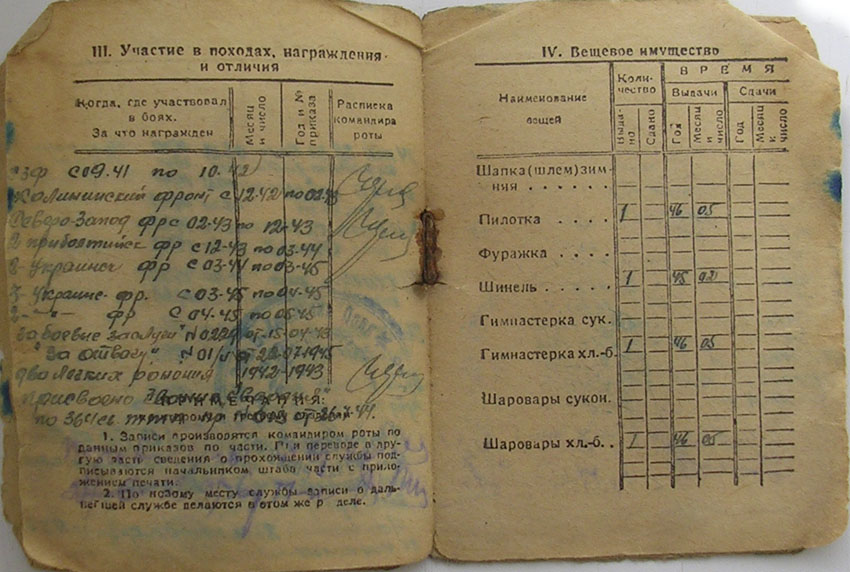 III. Участие в походах, награждения
и отличия
Когда, где участвовал
в боях.
За что награжден
Месяц
и число
Год и №
приказа
Расписка
командира
роты
с 09.41 по 10.42
Калининский фронт с 12-42 по 02-43
Северо-Запад фр с 02-43 по 12-43
2 прибалтийск фр с 12-43 по 03-44
2-украинск фр с 03-44 по 03-45
3 украинс- фр. с 03-45 по 04-45
2- -"- фр с 04-45 по 05-45
За боевые заслуги" от 15-04-43
"За отвагу" от 22-07-1945
два легких ранения 1942-1943
присвоено звание
по
1. Записи производятся командиром роты по
данным приказов по части. При переводе в дру-
гую часть сведения о прохождении службы под-
писываются начальником штаба части с прило-
жением печати.
2. По новому месту службы записи о даль-
нейшей службе делаются в этом же р деле.
IV. Вещевое имущество
Наименование
вещей
Коли-
чество
ВРЕМЯ
Выдачи
Сдачи
Выда-
но
Сдано
Год
Месяц
и
число
Год
Месяц
и
число
Шапка (шлем) зим-
няя . . . . . .
Пилотка . . . . 1 46 05
Фуражка . . . .
Шинель . . . . 1 45 02
Гимнастерка сук.
Гимнастерка хл.-б. 1 46 05
Шаровары сукон.
Шаровары хл.-б. . 1 46 05